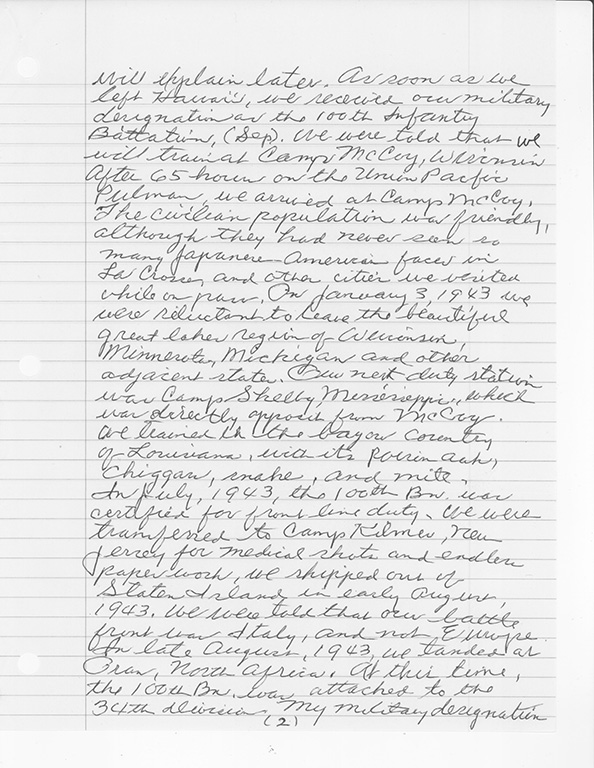 will explain later. As soon as we
left Hawaii, we received our military
designation as the 100th Infantry
Battation, (Sep). We were told that we
will train at Camp McCoy, Wisconsin
After 65 hours on the Union Pacific
Pulman, we arrived at Camp McCoy.
The civilian population was friendly,
although they had never seen so
many Japanese-American faces in
La Crosse, and other cities we visited
while on pass. On January 3, 1943 we
were reluctant to leave the beautiful
great lakes region of Wisconsin,
Minnesota, Michigan and other
adjacent states. Our next duty station
was Camp Shelby, Mississippi, which
was directly opposit from McCoy.
We trained in the bayou country
of Louisiana, with its poison oak,
chiggars, snake, and mite.
In July, 1943, the 100th Bn. was
certified for front line duty. We were
transferred to Camp Kilmer, New
Jersey for medical shots and endless
paper work, we shipped out of
Staten Island in early August,
1943. We were told that our battle
front was Italy, and not, Europe.
In late August, 1943, we landed at
Oran, North Africa. At this time,
the 100th Bn. was attached to the
34th division. My military designation
(2)